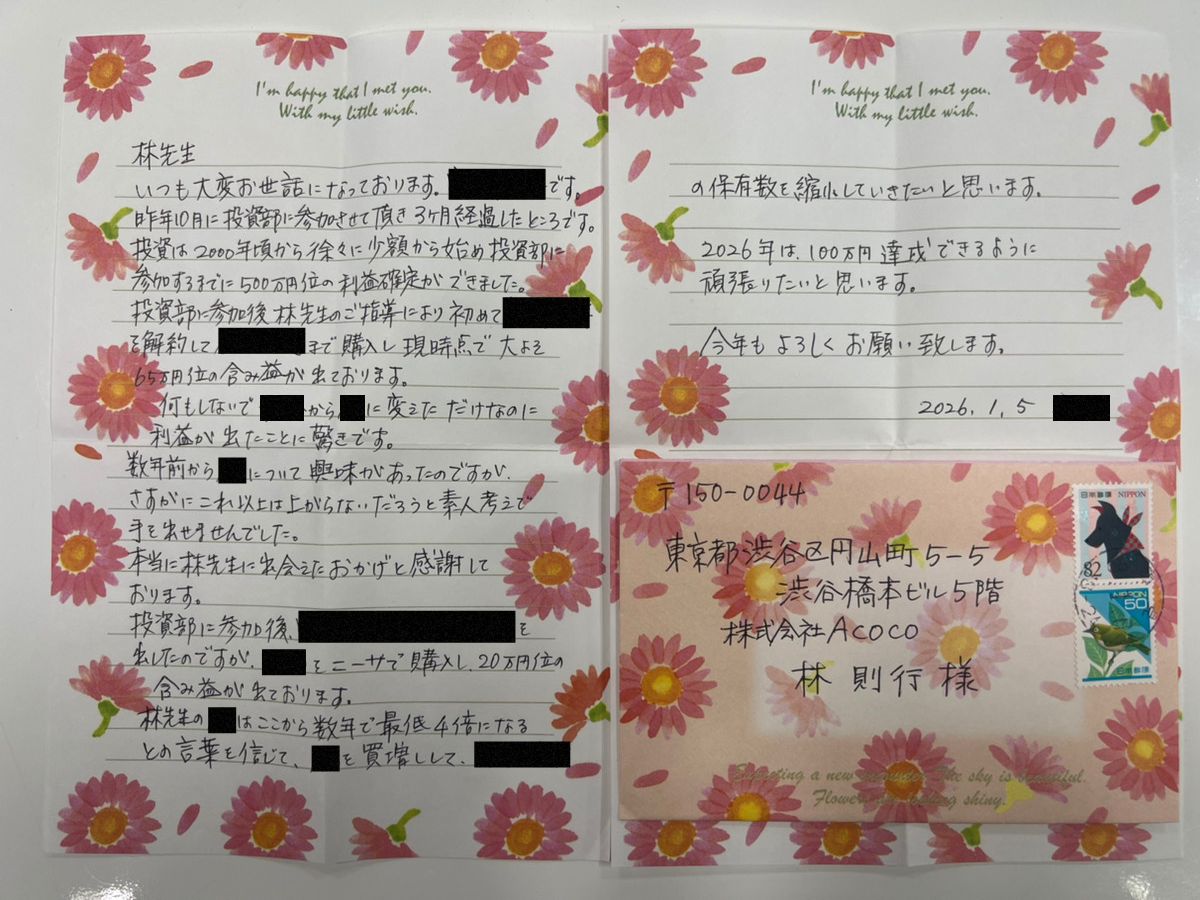 I'm happy that I met you.
With my little wish.
林先生
いつも大変お世話になっております。です。
昨年10月に投資部に参加させて頂き3ヶ月経過したところです。
投資は2000年頃から徐々に少額から始め投資部に
参加するまでに500万円位の利益確定ができました。
投資部に参加後林先生のご指導により初めて
を解約してまで購入し現時点で大よそ
65万円位の含み益が出ております。
何もしないでからに変えただけなのに
利益が出たことに驚きです。
数年前からについて興味があったのですが、
さすがにこれ以上は上がらないだろうと素人考えで
手を出せませんでした。
本当に林先生に出会えたおかげと感謝して
おります。
投資部に参加後、を
出したのですが、をニーサで購入し、20万円位の
含み益が出ております。
林先生のはここから数年で最低4倍になる
との言葉を信じて、を買増しして、
I'm happy that I met you.
With my little wish.
の保有数を縮小していきたいと思います。
2026年は、100万円達成できるように
頑張りたいと思います。
今年もよろしくお願い致します。
2026.1.5
〒150-0044
東京都渋谷区円山町5-5
渋谷橋本ビル5階
株式会社Acoco
林則行様
日本郵便 NIPPON
82
NIPPON
50
日本郵便
Expecting a new encounter. The sky is beautiful.
Flowers are looking shiny.